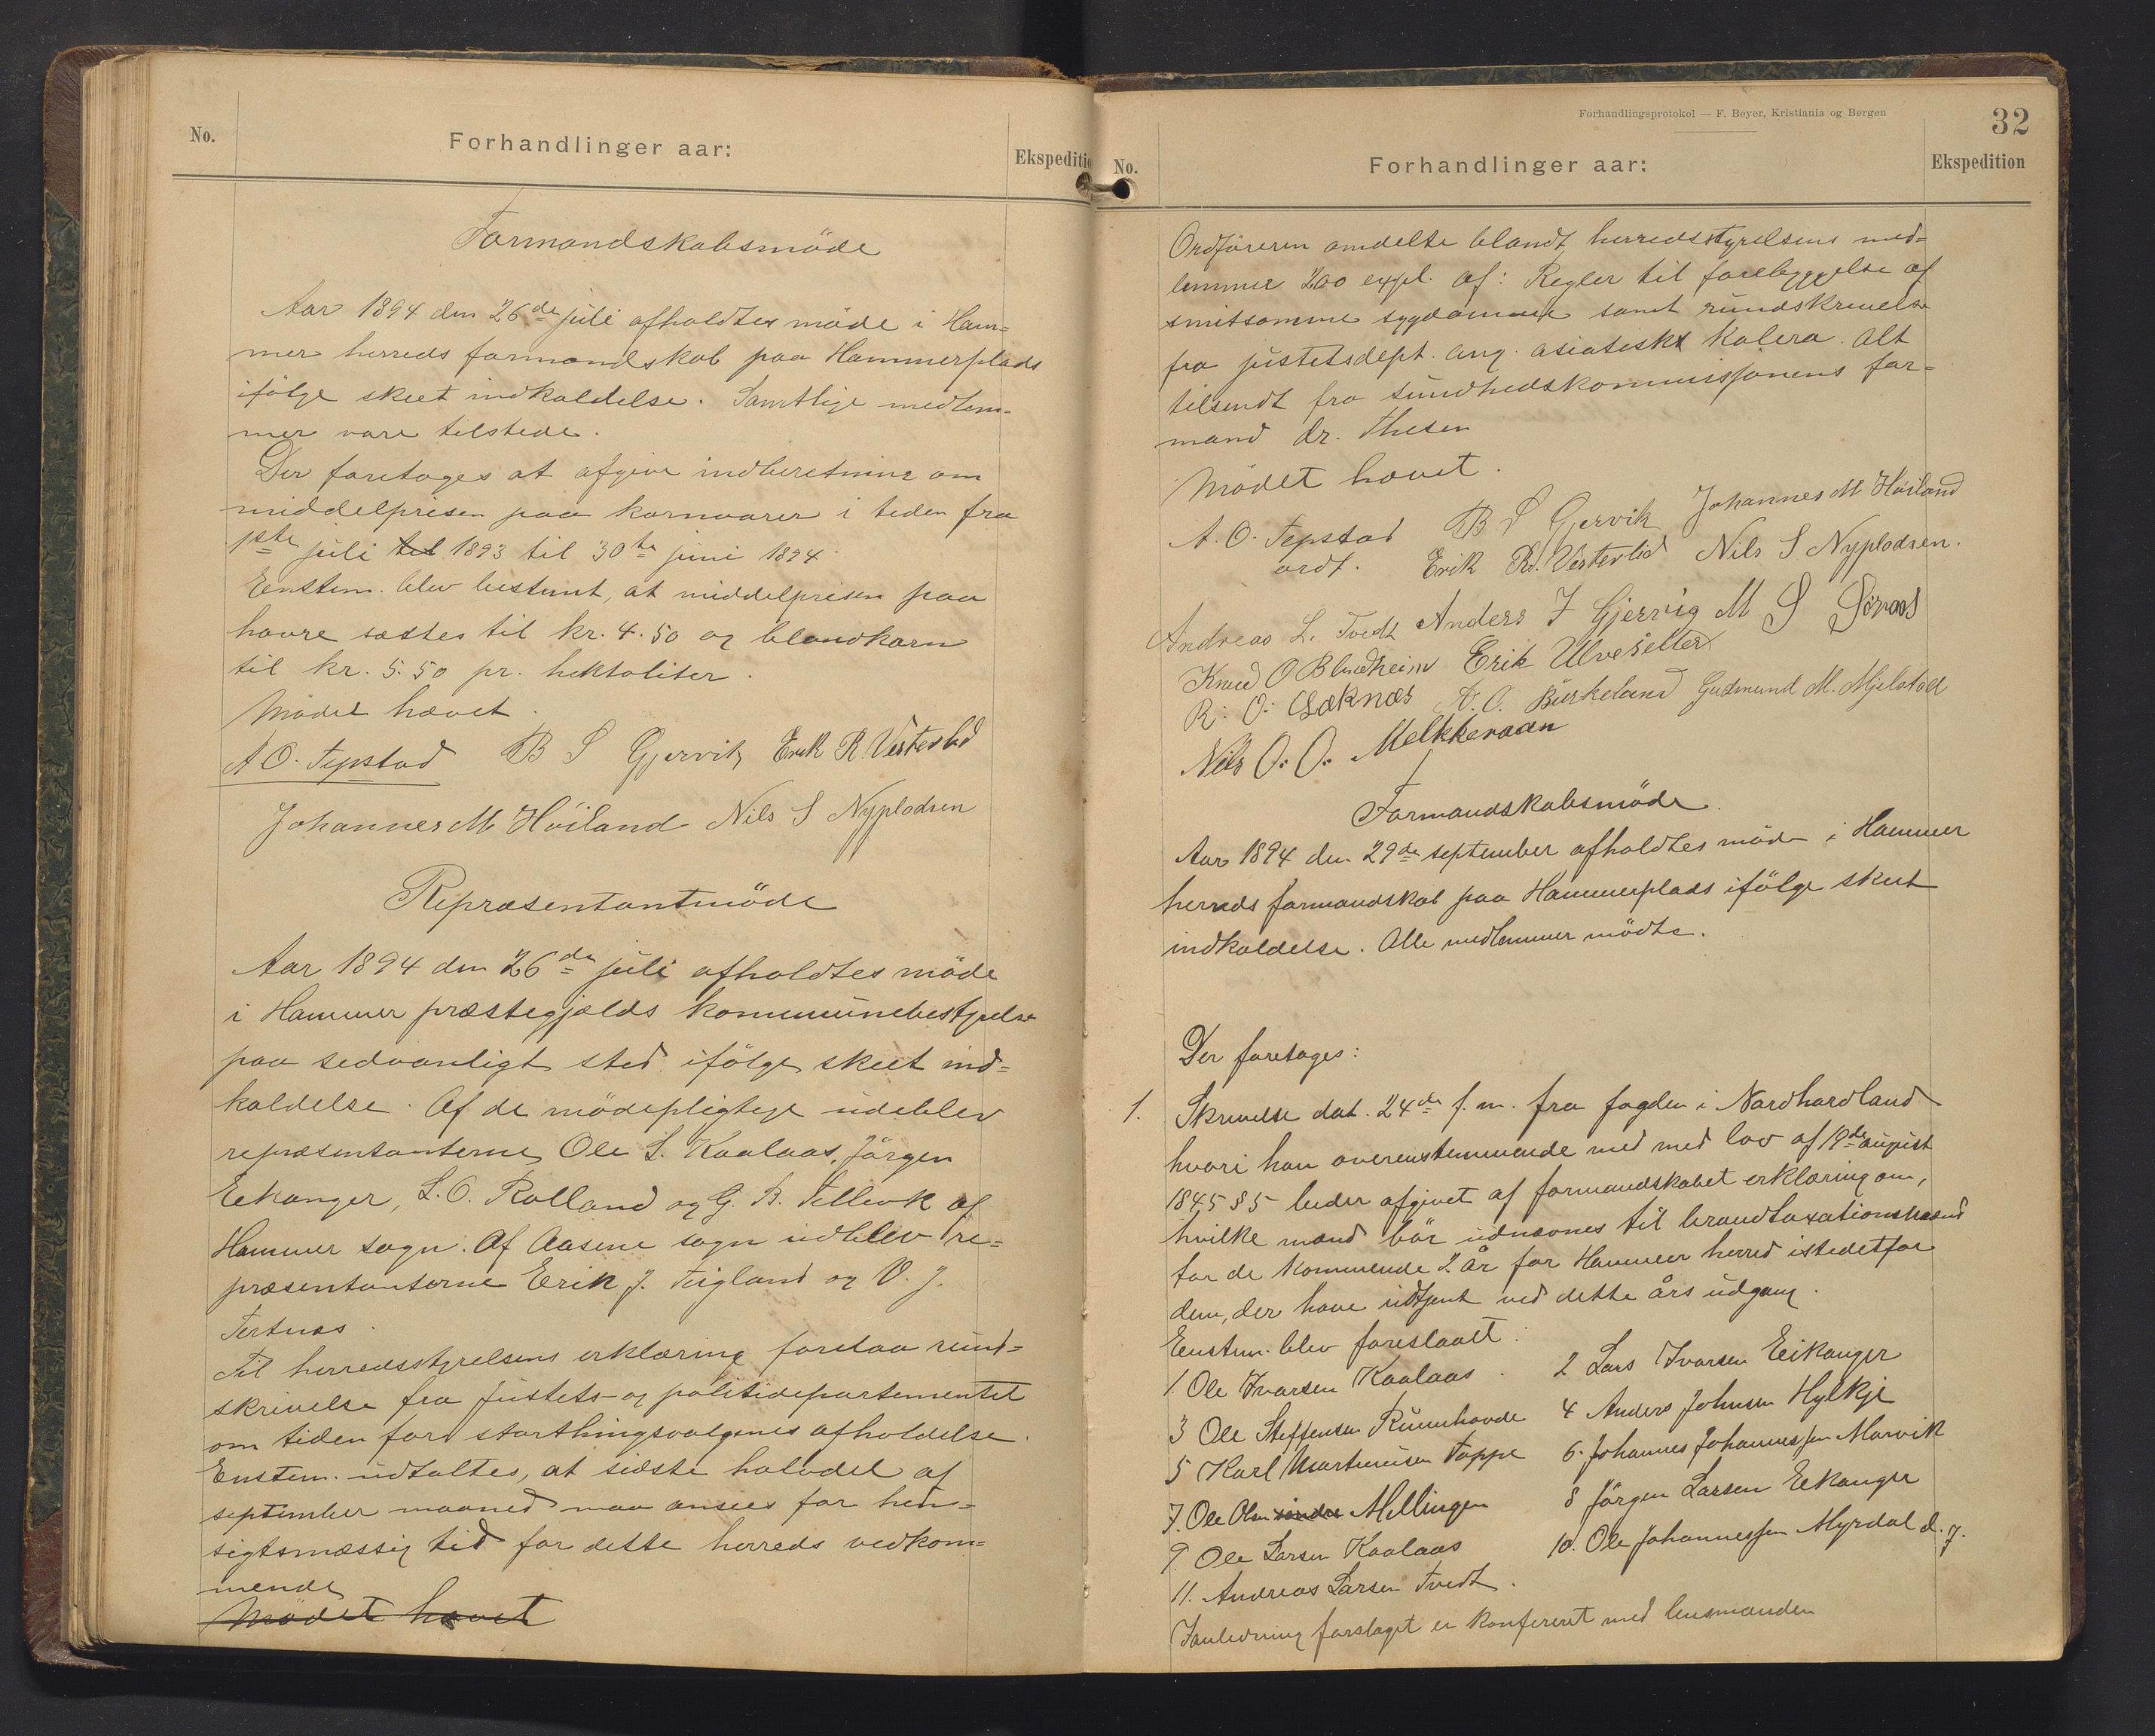 No.
Forhandlinger aar:
Ekspeditio
Formandskabsmöde
Aar 1894 den 26de juli afholdtes möde i Ham=
mer herreds formandskab paa Hammerplads
ifölge skeet indkaldelse. Samtlige medlem-
mer vare tilstede.
Der foretoges at afgive indberetning om
middelprisen paa kornvarer i tiden fra
1ste juli til 1893 til 30te juni 1894
Enstem. blev bestemt, at middelprisen paa
havre sættes til kr. 4.50 og blandkorn
til kr. 5.50 pr. hektoliter.
Mödet hævet.
A O. Tepstad B S Gjervik Erik R. Vestestid
Johannes M Höiland Nils S Nyplodsen
Repræsentantmöde
Aar 1894 den 26de juli afholdtes möde
i Hammer præstegjælds kommunebestyrelse
paa sedvanligt sted ifölge skeet ind=
kaldelse. Af de mödepligtige udeblev
repræsentanterne Ole L. Kaalaas, Jörgen
Eekanger, L. O. Rolland og G. B. Tellevik af
Hammer sogn. Af Aasene sogn udblev re=
præsentanterne Erik J. Teigland og O. J.
Tertnæs.
Til herredsstyrelsens erklæring forelaa rund=
skrivelse fra Justets- og politidepartementet
om tiden for storthingsvalgenes afholdelse.
Enstem. udtaltes, at sidste halvdel af
september maaned maa ansees for hen=
sigtsmæssig tid for dette herreds vedkom=
mende
Mödet hævet
Forhandlingsprotokol — F. Beyer, Kristiania og Bergen
32
No.
Forhandlinger aar:
Ekspedition
Ordföreren omdelte blandt herredsstyrelsens med=
lemmer 200 expl. af: Regler til forebyggelse af
smitsomme sygdomme samt rundskrivelse
fra justetsdept. ang. asiatisk kolera. Alt
tilsendt fra sundhedskommissjonens for=
mand dr. Thesen
Mödet hævet.
A. O. Tepstad B S Gjervik Johannes M Höiland
ordf. Erik R. Vestestid Nils S Nyplodsen.
Andreas L. Tvedt Anders J Gjervig M S
Knud O Blindheim Erik Ulvesetter
R. O. Læknæs A. O. Birkeland Gudmund M. Mjelstad
Nils O. O. Melkkeraaen
Formandskabsmöde.
Aar 1894 den 29de september afholdtes möde i Hammer
herreds formandskab paa Hammerplads ifölge skeet
indkaldelse. Alle medlemmer mödte.
Der foretoges:
1. Skrivelse dat. 24de f. m. fra fogden i Nordhordland
hvori han overenstemmende med med lov af 19de august
1845 § 5 beder afgivet af formandskabet erklæring om,
hvilke mænd bör udnævnes til brandtaxationsmænd
for de kommende 2 år for Hammer herred istedetfor
dem, der have udtjent ved dette års udgang.
Enstem. blev foreslaaet:
1. Ole Ivarsen Kaalaas. 2 Lars Ivarsen Eikanger
3 Ole Steffensen Runnhovde 4 Anders Johnsen Hylkje
5 Karl Martinusen Toppe 6. Johannes Johannessen Morvik
7. Ole Olsen Mellingen 8 Jörgen Larsen Eekanger
9. Ole Larsen Kaalaas 10. Ole Johannessen Myrdal d. y.
11. Andreas Larsen Tvedt.
forslaget er konfereret med lensmanden